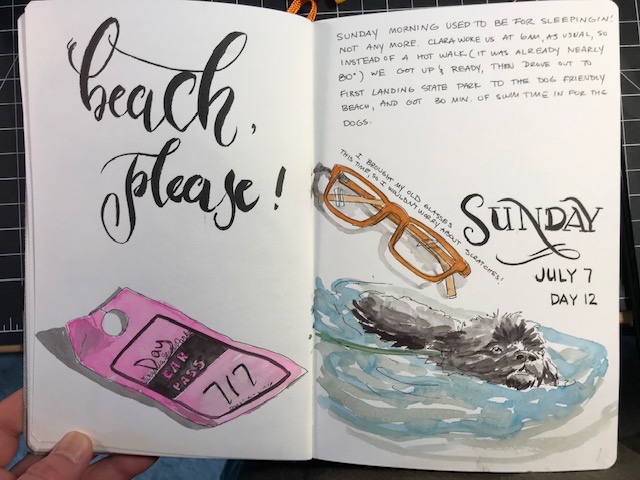 beach,
please!
Day
CAR
PASS
7/7
SUNDAY MORNING USED TO BE FOR SLEEPINGIN!
NOT ANY MORE. CLARA WOKE US AT 6AM, AS USUAL, SO
INSTEAD OF A HOT WALK (IT WAS ALREADY NEARLY
80°) WE GOT UP & READY, THEN DROVE OUT TO
FIRST LANDING STATE PARK TO THE DOG FRIENDLY
BEACH, AND GOT 30 MIN. OF SWIM TIME IN FOR THE
DOGS.
I BROUGHT MY OLD GLASSES
THIS TIME, SO I WOULDN'T WORRY ABOUT SCRATCHES!
SUNDAY
JULY 7
DAY 12